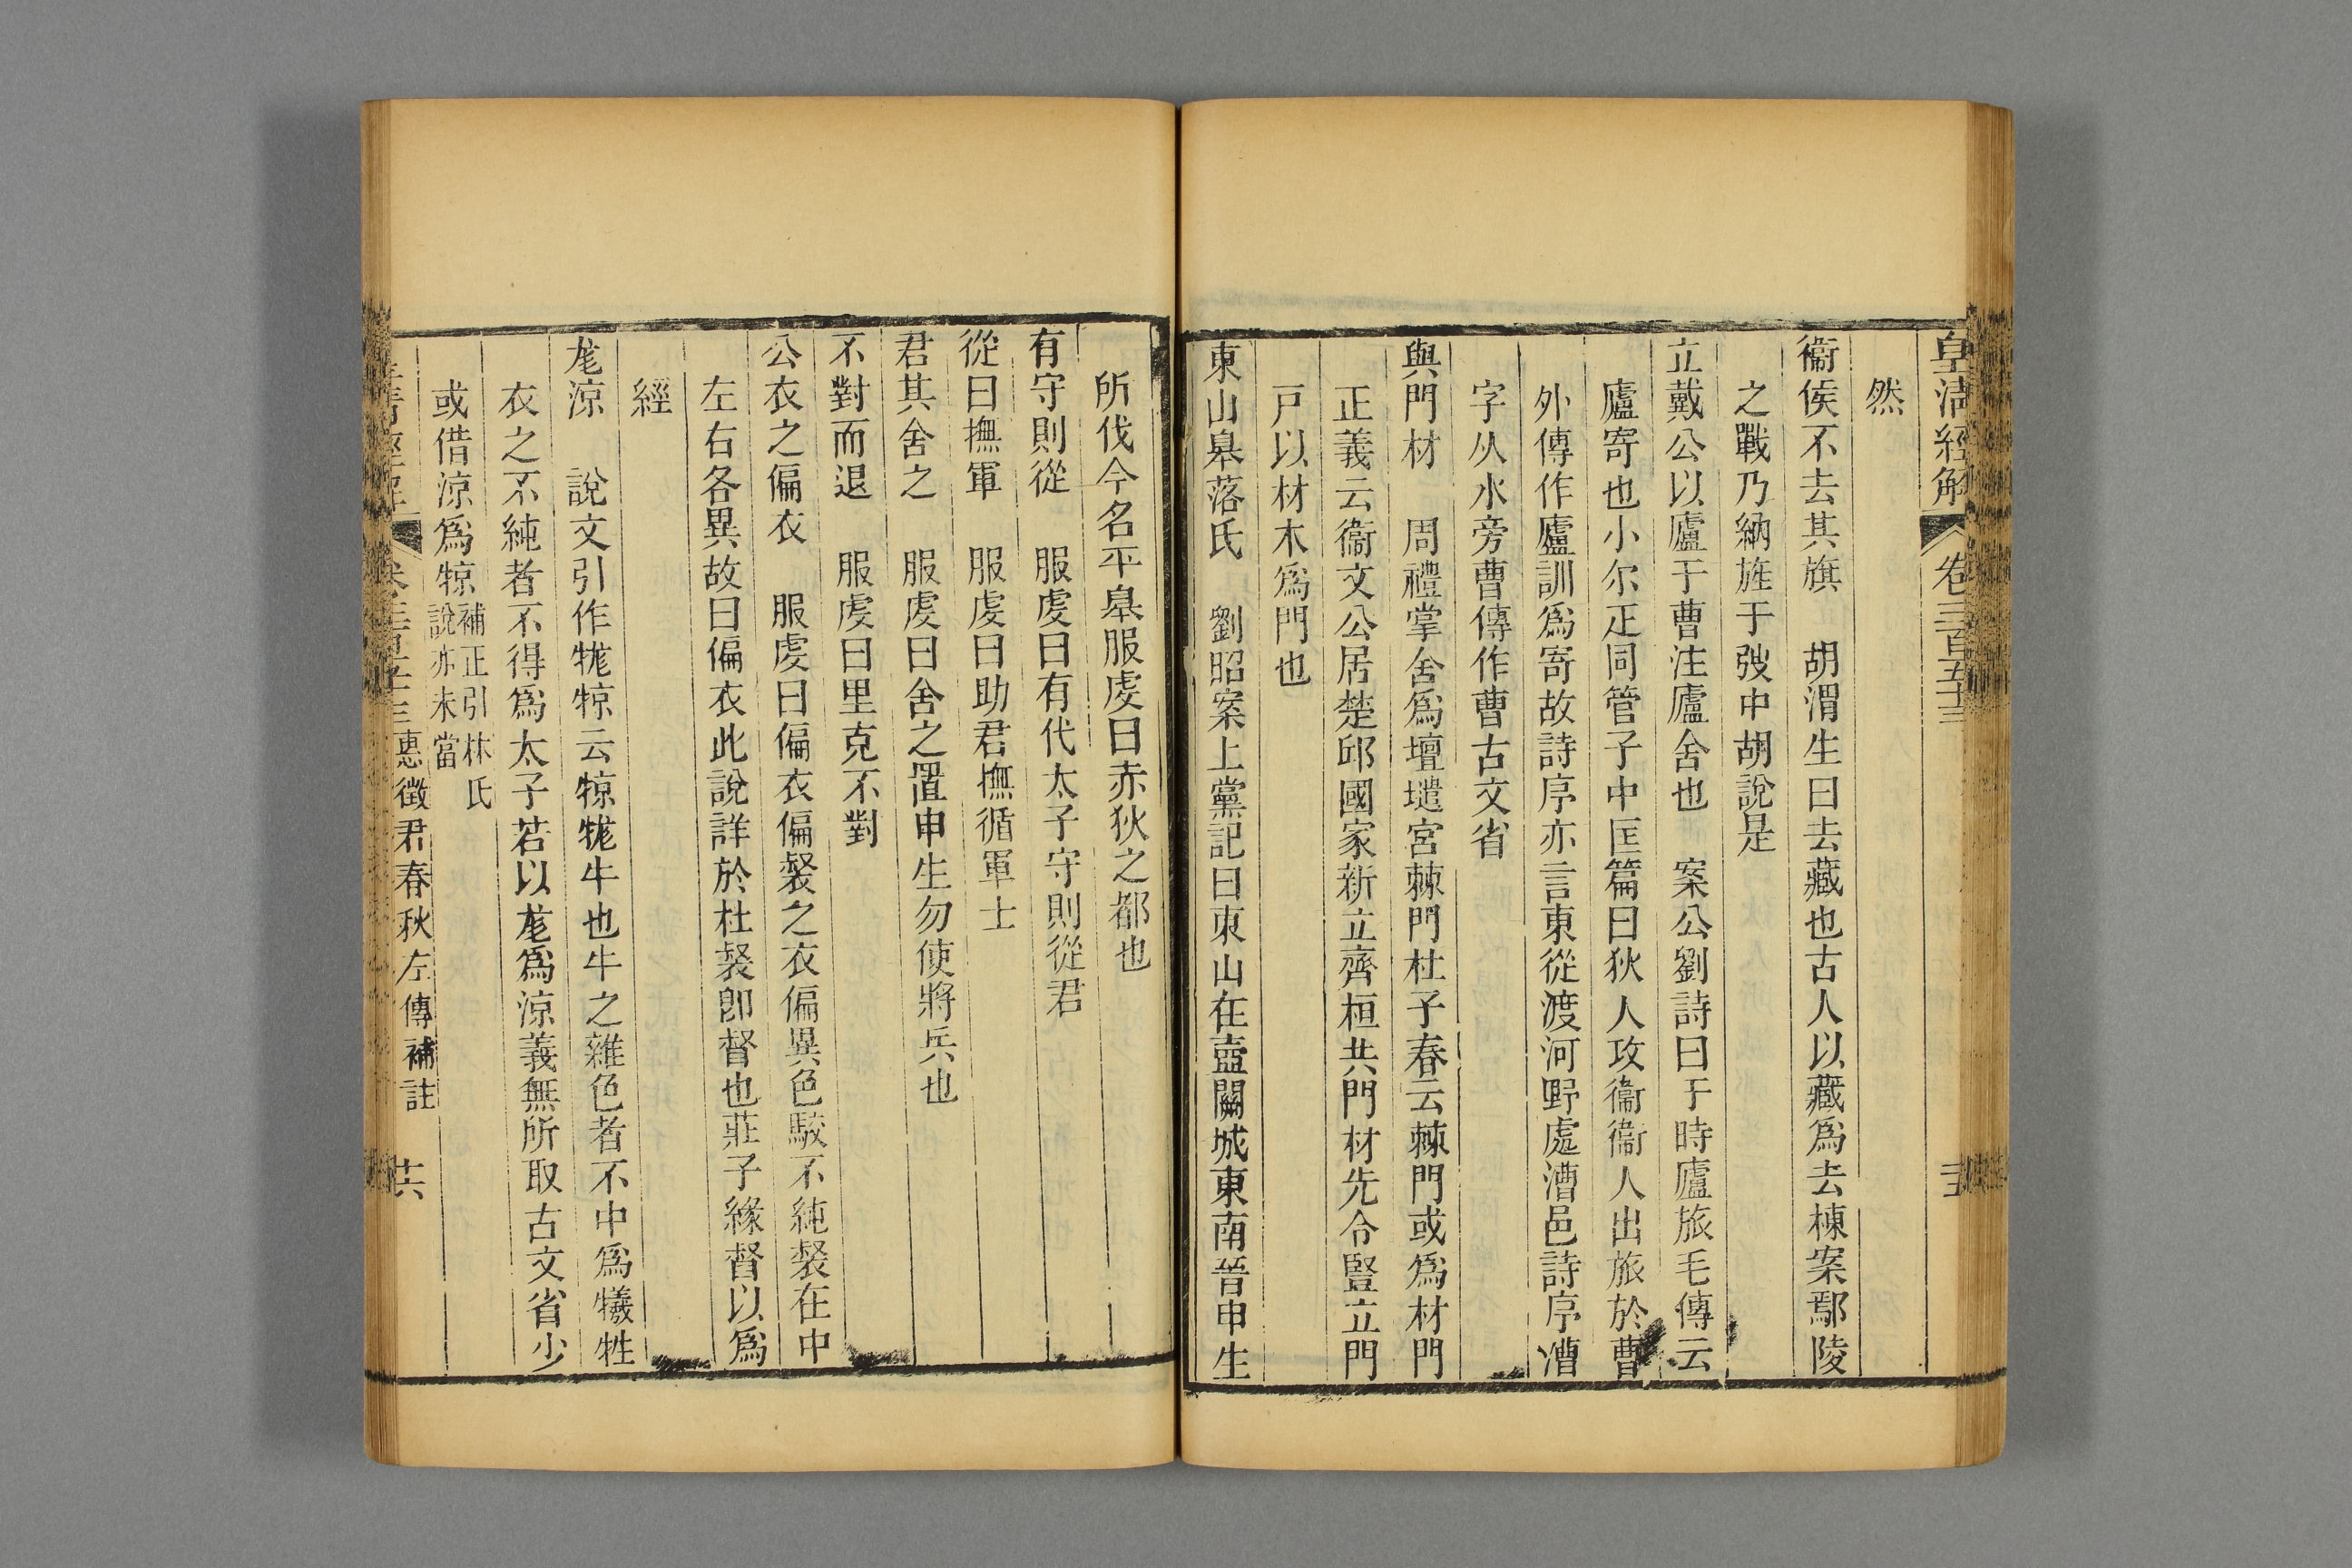 皇清經解 卷三百五十三
然
衞侯不去其旗 胡渭生曰去藏也古人以藏爲去棟案鄢陵
之戰乃納旌于弢中胡說是
立戴公以廬于曹注廬舍也 案公劉詩曰于時廬旅毛傳云
廬寄也小尔正同管子中匡篇曰狄人攻衞衞人出旅於曹
外傳作廬訓爲寄故詩序亦言東從渡河野處漕邑詩序漕
字从水旁曹傳作曹古文省
與門材 周禮掌舍爲壇壝宮棘門杜子春云棘門或爲材門
正義云衞文公居楚邱國家新立齊桓共門材先令豎立門
戸以材木爲門也
東山皋落氏 劉昭案上黨記曰東山在壺關城東南晉申生
所伐今名平皋服虔曰赤狄之都也
有守則從 服虔曰有代太子守則從君
從曰撫軍 服虔曰助君撫循軍士
君其舍之 服虔曰舍之置申生勿使將兵也
不對而退 服虔曰里克不對
公衣之偏衣 服虔曰偏衣偏裻之衣偏異色駮不純裻在中
左右各異故曰偏衣此說詳於杜裻卽督也莊子緣督以爲
經
尨涼 說文引作牻㹁云㹁牻牛也牛之雜色者不中爲犧牲
衣之不純者不得爲太子若以尨爲涼義無所取古文省少
或借涼爲㹁補正引林氏
說亦未當
惠徵君春秋左傳補註 十六